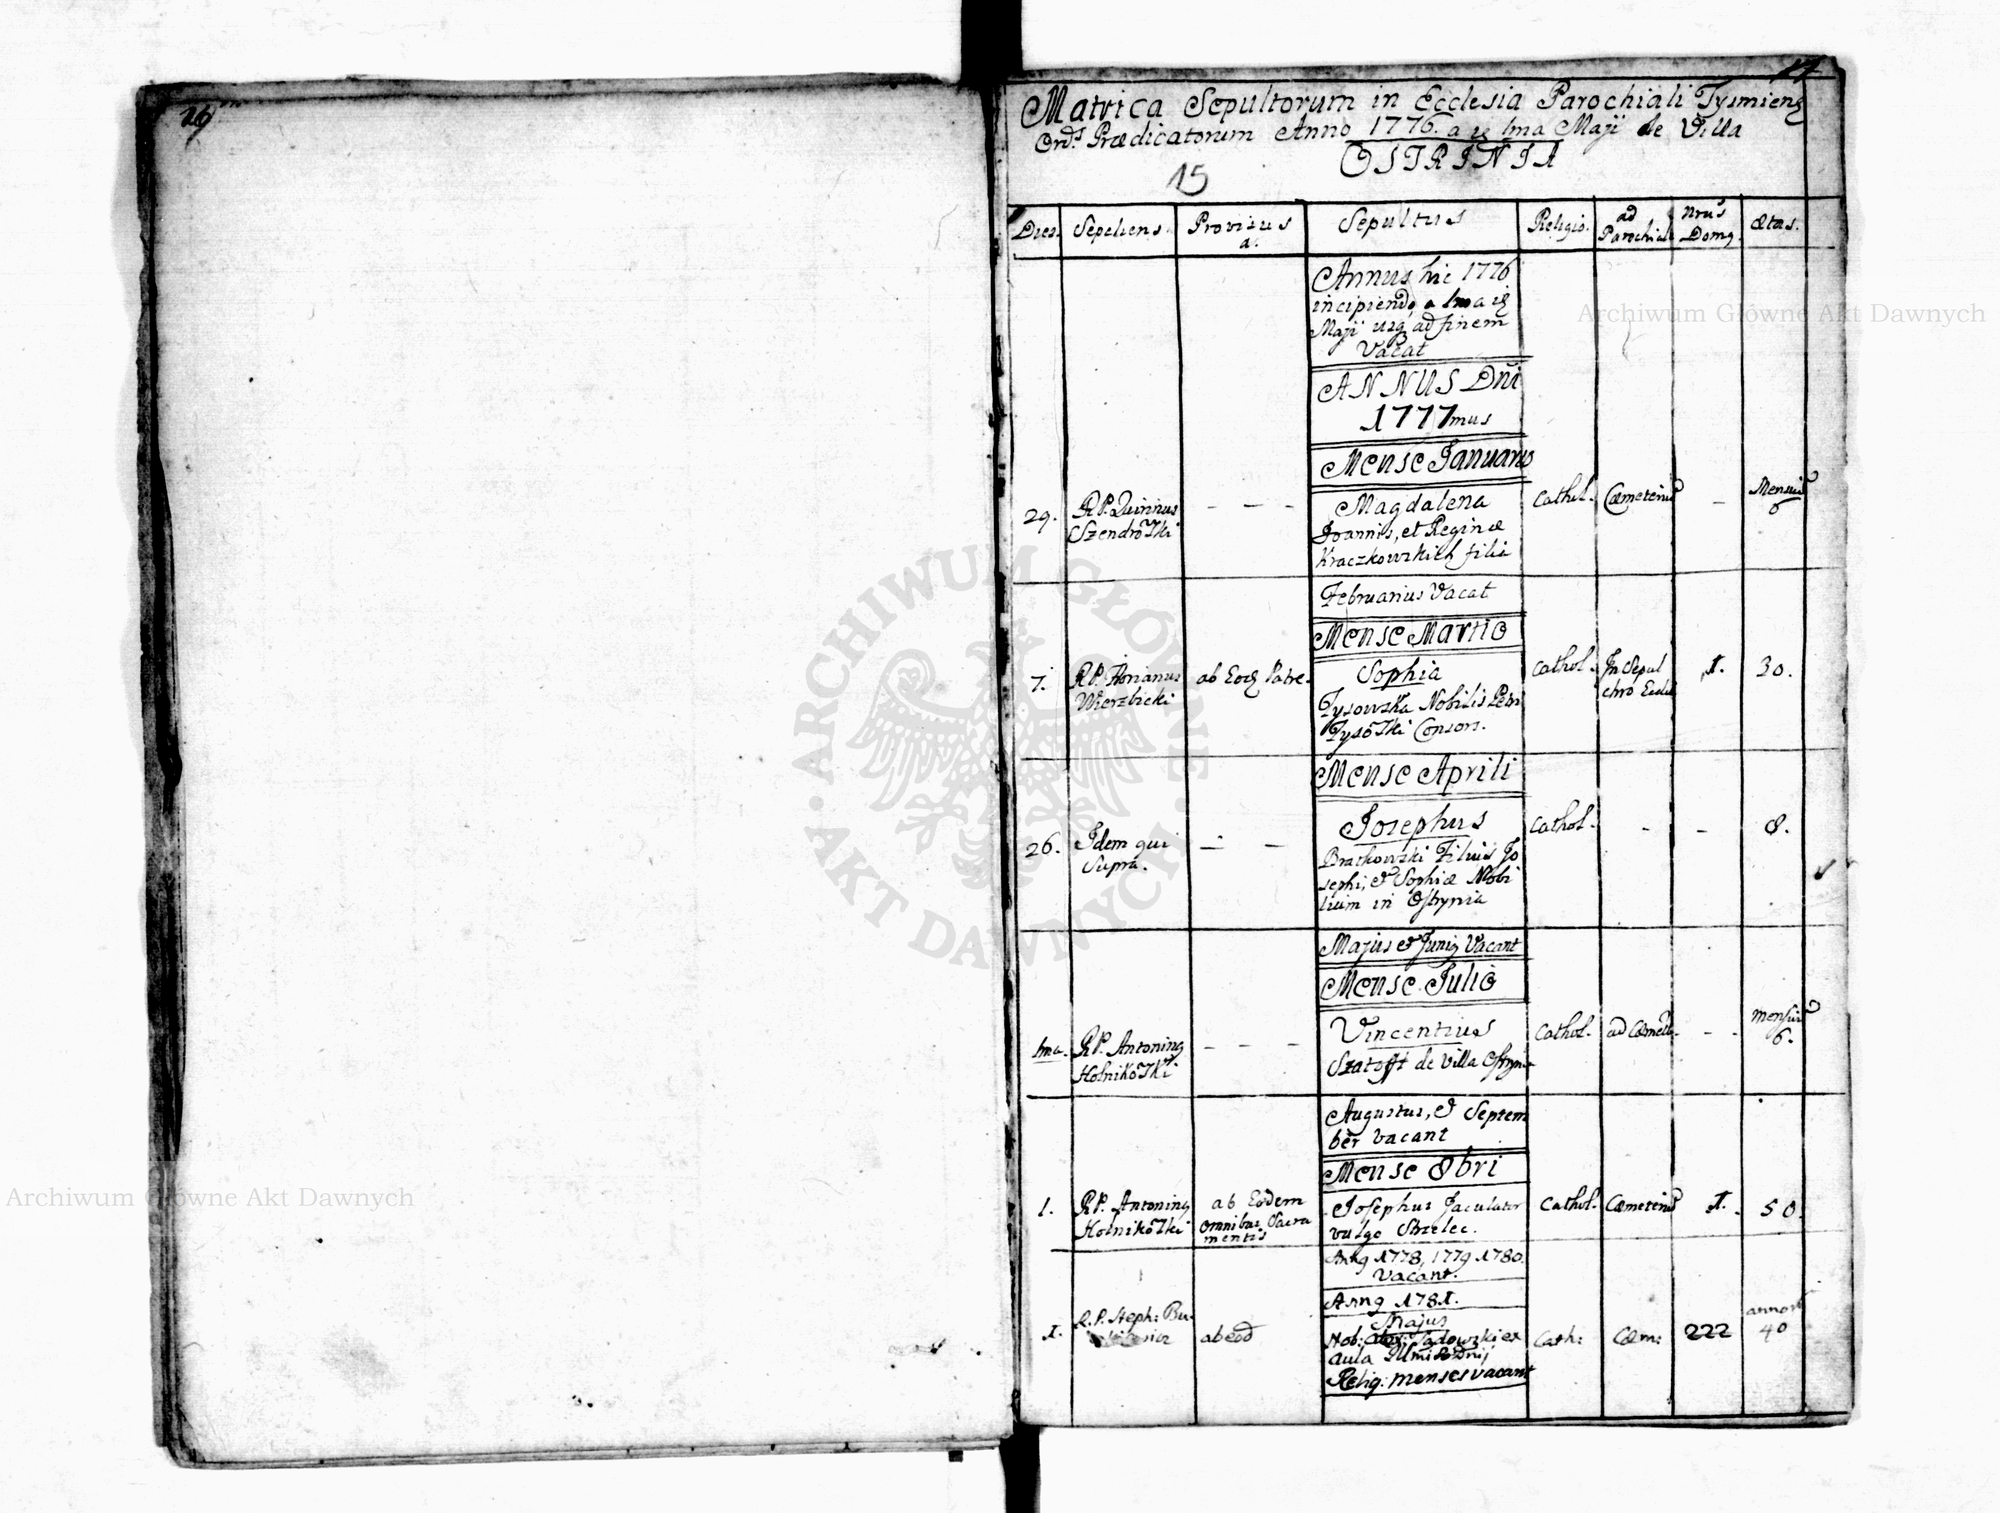 26
17
Matrica Sepultorum in Ecclesia Parochiali Tysmienę
Ord: Prædicatorum Anno 1776. a 1ma Maji de Villa
OSTRINIA
15
Dies. Sepeliens. Provisus a. Sepultus Religio. ad Parochial Nrus Domq. Ætas.
Annus hic 1776
incipiendo a 1ma
Maji usq ad finem
Vacat
ANNUS Dñi
1777mus
Mense Januario
29. R.P. Quirinus
Szendrowski
- - -
Magdalena
Joannis, et Reginæ
Kraczkowskich filia
Cathol. Cæmeteriu - Mensiu
6
Februarius Vacat
Mense Martio
7. R.P. Florianus
Wierzbicki
ab Eodem Patre.
Sophia
Tysowska Nobilis Petri
Tysowski Consors.
Cathol. In Sepul
chro Eccle
1. 30.
Mense Aprili
26. Idem qui
Supra.
- -
Josephus
Bratkowski Filius Jo
sephi, et Sophiæ Nobi
lium in Ostrynia
Cathol. - - 8.
Majus et Juniq Vacant
Mense Julio
1ma. R.P. Antoninq
Holnikowski
- - -
Vincentius
de Villa Ostryn
Cathol. ad Cæmete. - - mensiu
6.
Augustus, et Septem
ber vacant
Mense 8bri
1. R.P. Antoninq
Holnikowski
ab Eodem
omnibus Sacra
mentis
Josephus Jaculator
vulgo Strzelec.
Cathol. Cæmeteriu 1. 50.
Annq 1778, 1779 1780.
Vacant.
Annq 1781.
Majus
1. R.P. Steph: Bu-
ab eod
Nob: Sadowski ex
aula Illmi Dnij
Reliq: menses vacant
Cath: Cæm: 222 annor
40
ARCHIWUM GŁÓWNE AKT DAWNYCH
Archiwum Główne Akt Dawnych
Archiwum Główne Akt Dawnych